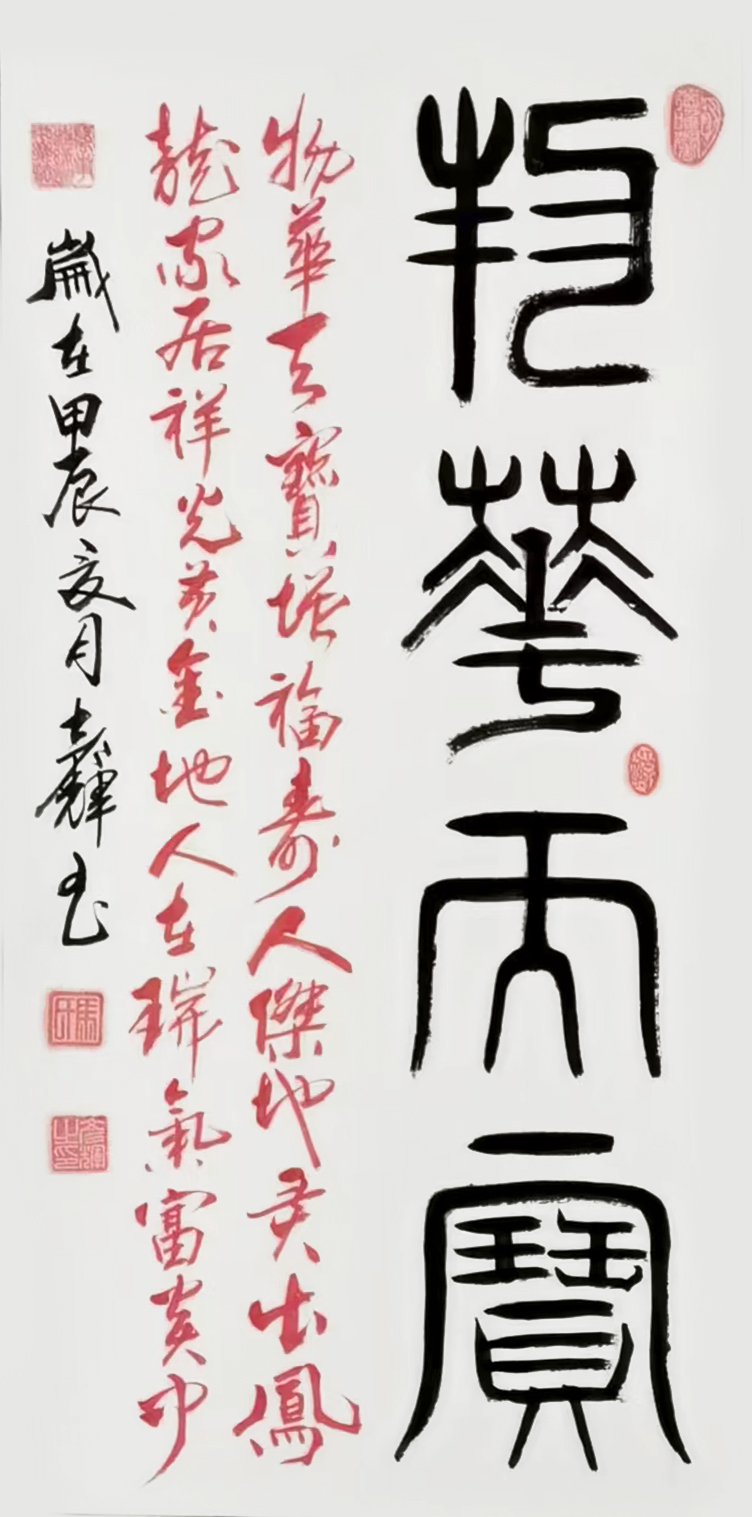 物華天寶
物華天寶增福壽人傑地灵出鳳
龍家居祥光黄金地人在瑞氣富贵中
歲在甲辰夏月輝书